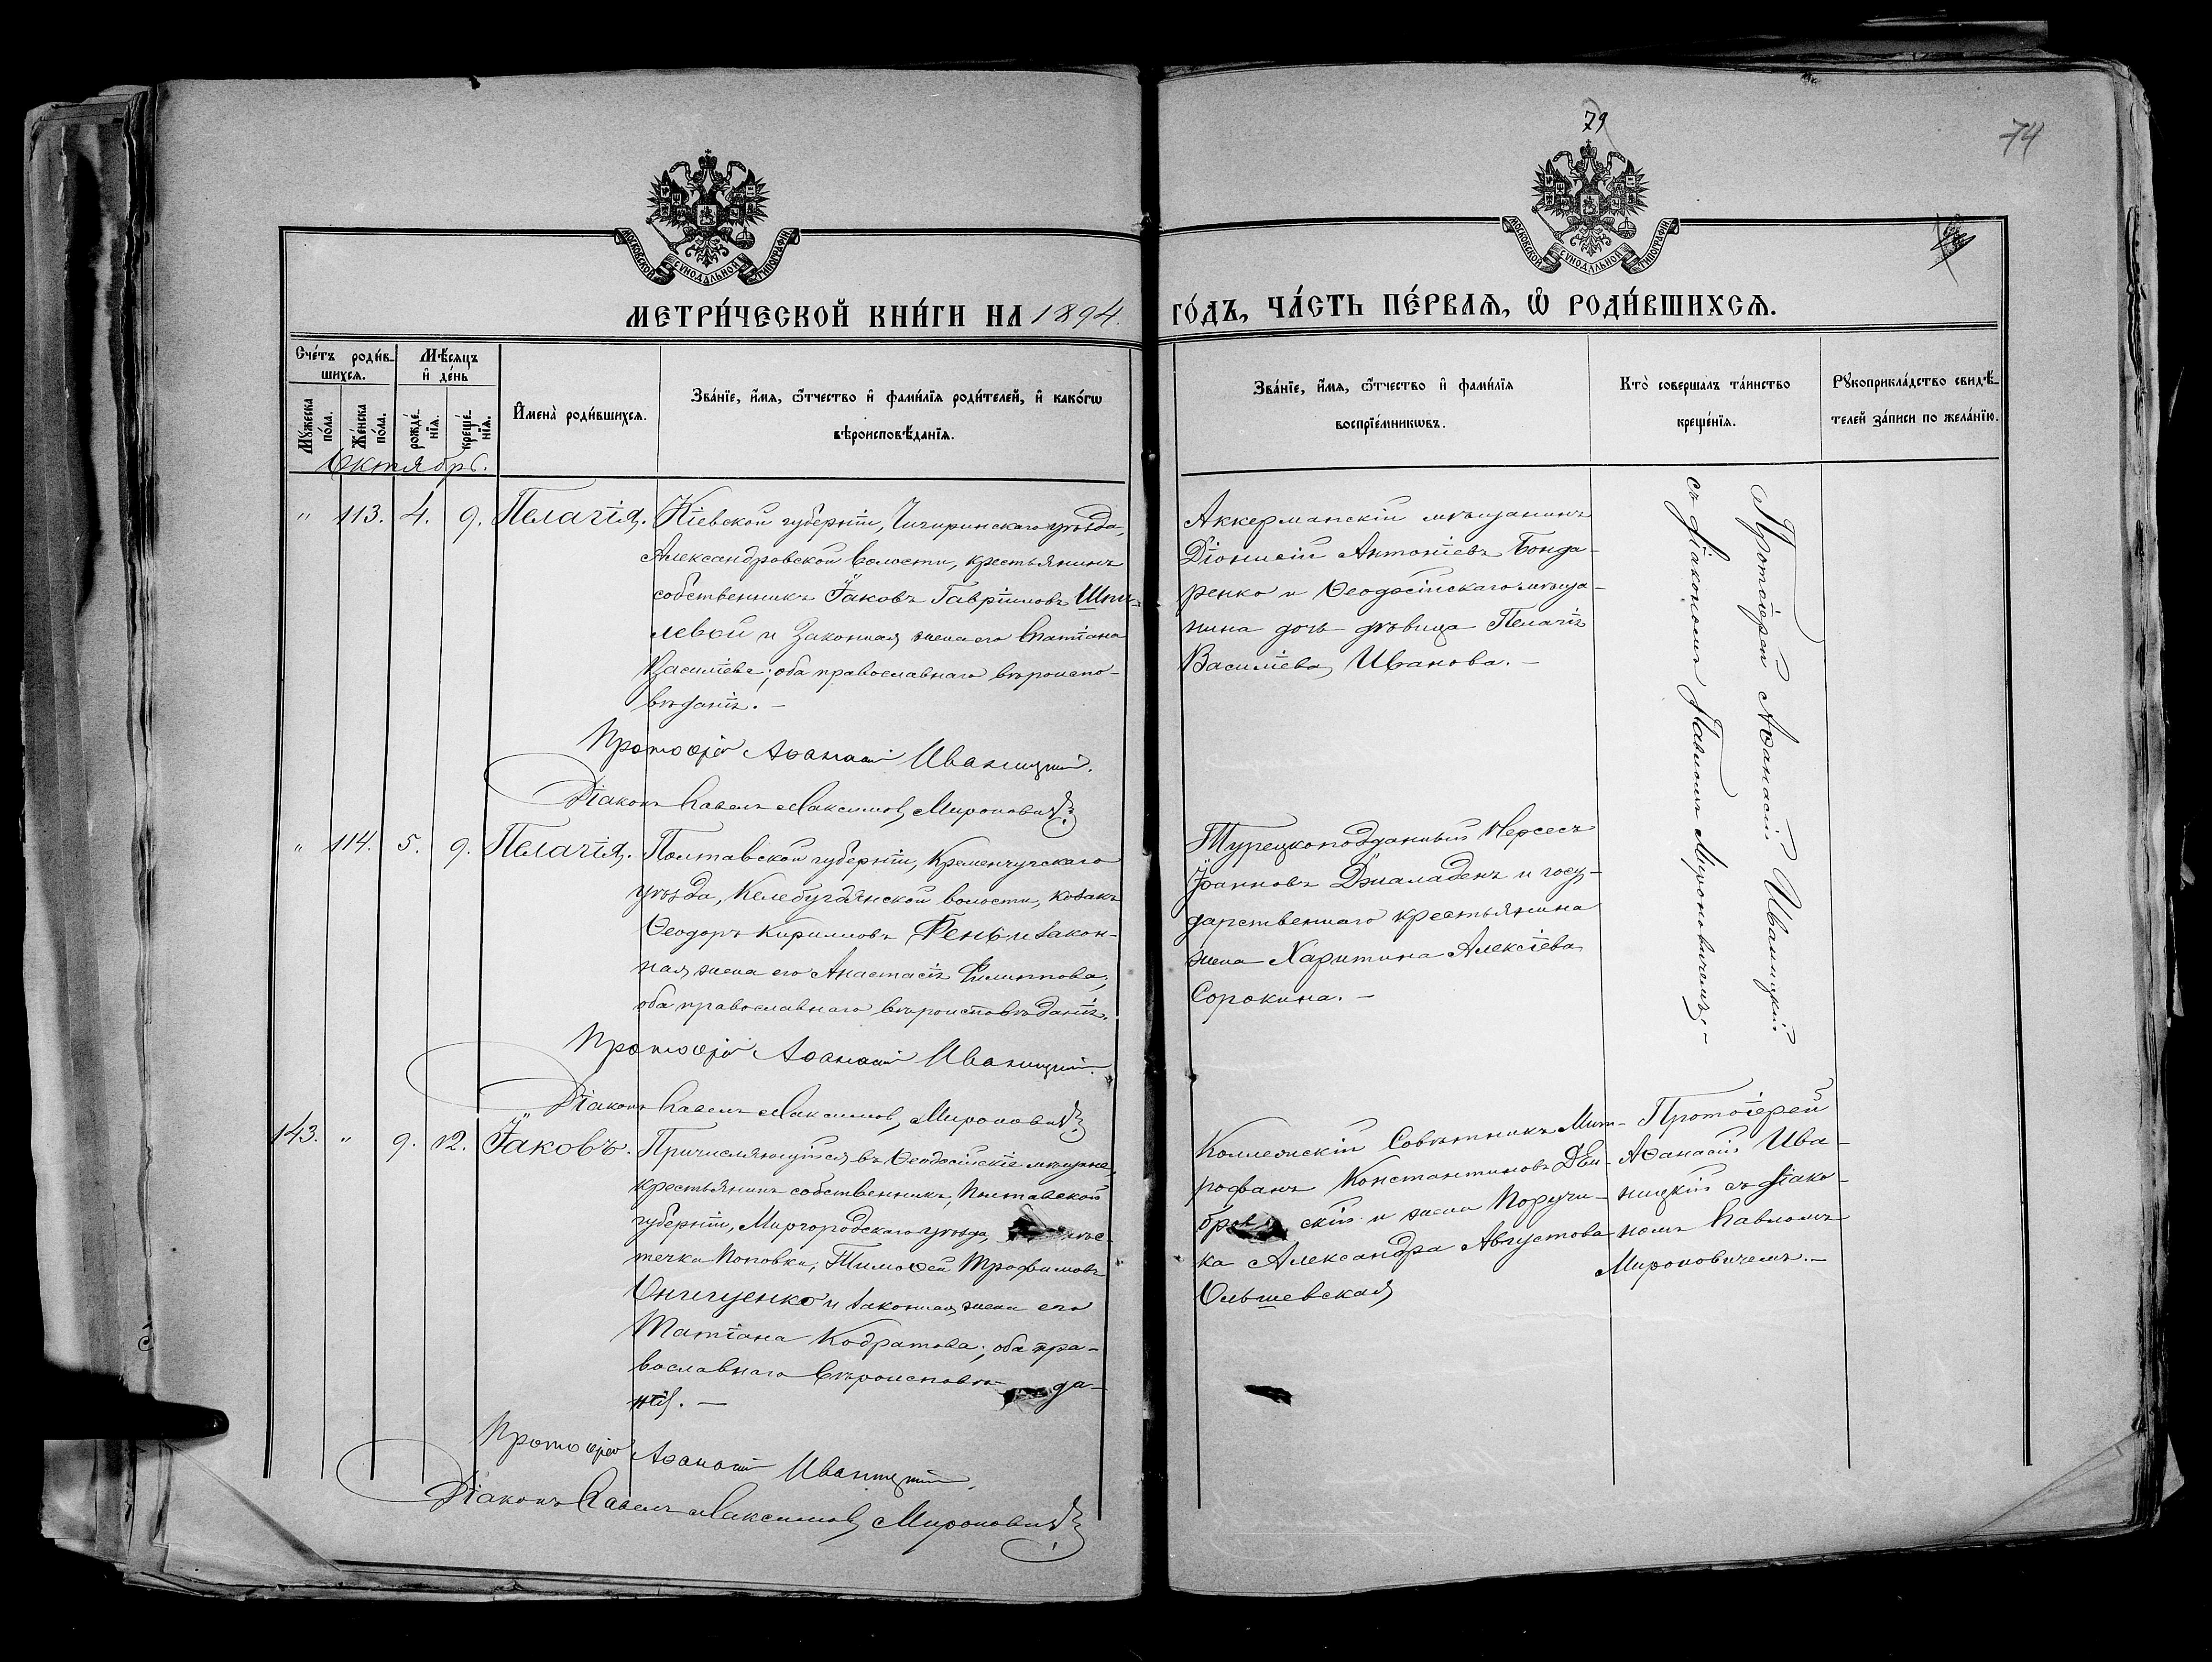 79
74
МОСКОВСКОЙ СѴНОДАЛЬНОЙ ТИПОГРАФІИ
МОСКОВСКОЙ СѴНОДАЛЬНОЙ ТИПОГРАФІИ
МЕТРИ́ЧЕСКОЙ КНИ́ГИ НА 1894. ГО́ДЪ, ЧА́СТЬ ПЕ́РВАѦ, Ѿ РОДИ́ВШИХСѦ.
Сче́тъ роди́вшихсѧ.
Мꙋ́жеска по́ла.
Же́нска по́ла.
Мѣ́сѧцъ и҆ де́нь
рожде́нїѧ.
креще́нїѧ.
И҆мена̀ роди́вшихсѧ.
Зва́нїе, и҆́мѧ, ѻ҆́тчество и҆ фами́лїѧ роди́телей, и҆ како́гѡ
вѣроисповѣ́данїѧ.
Зва́нїе, и҆́мѧ, ѻ҆́тчество и҆ фами́лїѧ
воспрїе́мникѡвъ.
Кто̀ соверша́лъ та́инство
креще́нїѧ.
Рꙋкоприкла́дство свидѣ́-
телей за́писи по жела́нїю.
Октябрь.
" 113. 4. 9. Пелагія.
Кіевской губерніи, Чигиринскаго уѣзда,
Александровской волости, крестьянинъ
собственникъ Іаковъ Гавріиловъ Шпи-
левой и законная жена его Татіана
Василіева; оба православнаго вѣроиспо-
вѣданія. –
Протоіерей Аѳанасій Иваницкій.
Діаконъ Павелъ Максимовъ Мироновичъ
Аккерманскій мѣщанинъ
Діонисій Антоніевъ Бонда-
ренко и Ѳеодосійскаго мѣща-
нина дочь дѣвица Пелагія
Василіева Иванова. –
Протоіерей Аѳанасій Иваницкій
съ діакономъ Павломъ Мироновичемъ. –
" 114. 5. 9. Пелагія.
Полтавской губерніи, Кременчугскаго
уѣзда, Келебердянской волости, козакъ
Ѳеодоръ Кирилловъ Фень и закон-
ная жена его Анастасія Филиппова;
оба православнаго вѣроисповѣданія.
Протоіерей Аѳанасій Иваницкій.
Діаконъ Павелъ Максимовъ Мироновичъ
Турецкоподданный Нерсесъ
Іоанновъ Джаладенъ и госу-
дарственнаго крестьянина
жена Харитина Алексіева
Сорокина. –
143. " 9. 12. Іаковъ.
Причисляющійся въ Ѳеодосійскіе мѣщане,
крестьянинъ собственникъ, Полтавской
губерніи, Миргородскаго уѣзда, мѣс-
течка Поповки, Тимоѳей Трофимовъ
Онищенко и законная жена его
Татіана Кодратова; оба пра-
вославнаго вѣроисповѣда-
нія. –
Протоіерей Аѳанасій Иваницкій.
Діаконъ Павелъ Максимовъ Мироновичъ
Коллежскій Совѣтникъ Мит-
рофанъ Константиновъ Дом-
бров скій и жена Поручи-
ка Александра Августова
Ольшевская
Протоіерей
Аѳанасій Ива-
ницкій съ діако-
номъ Павломъ
Мироновичемъ. –